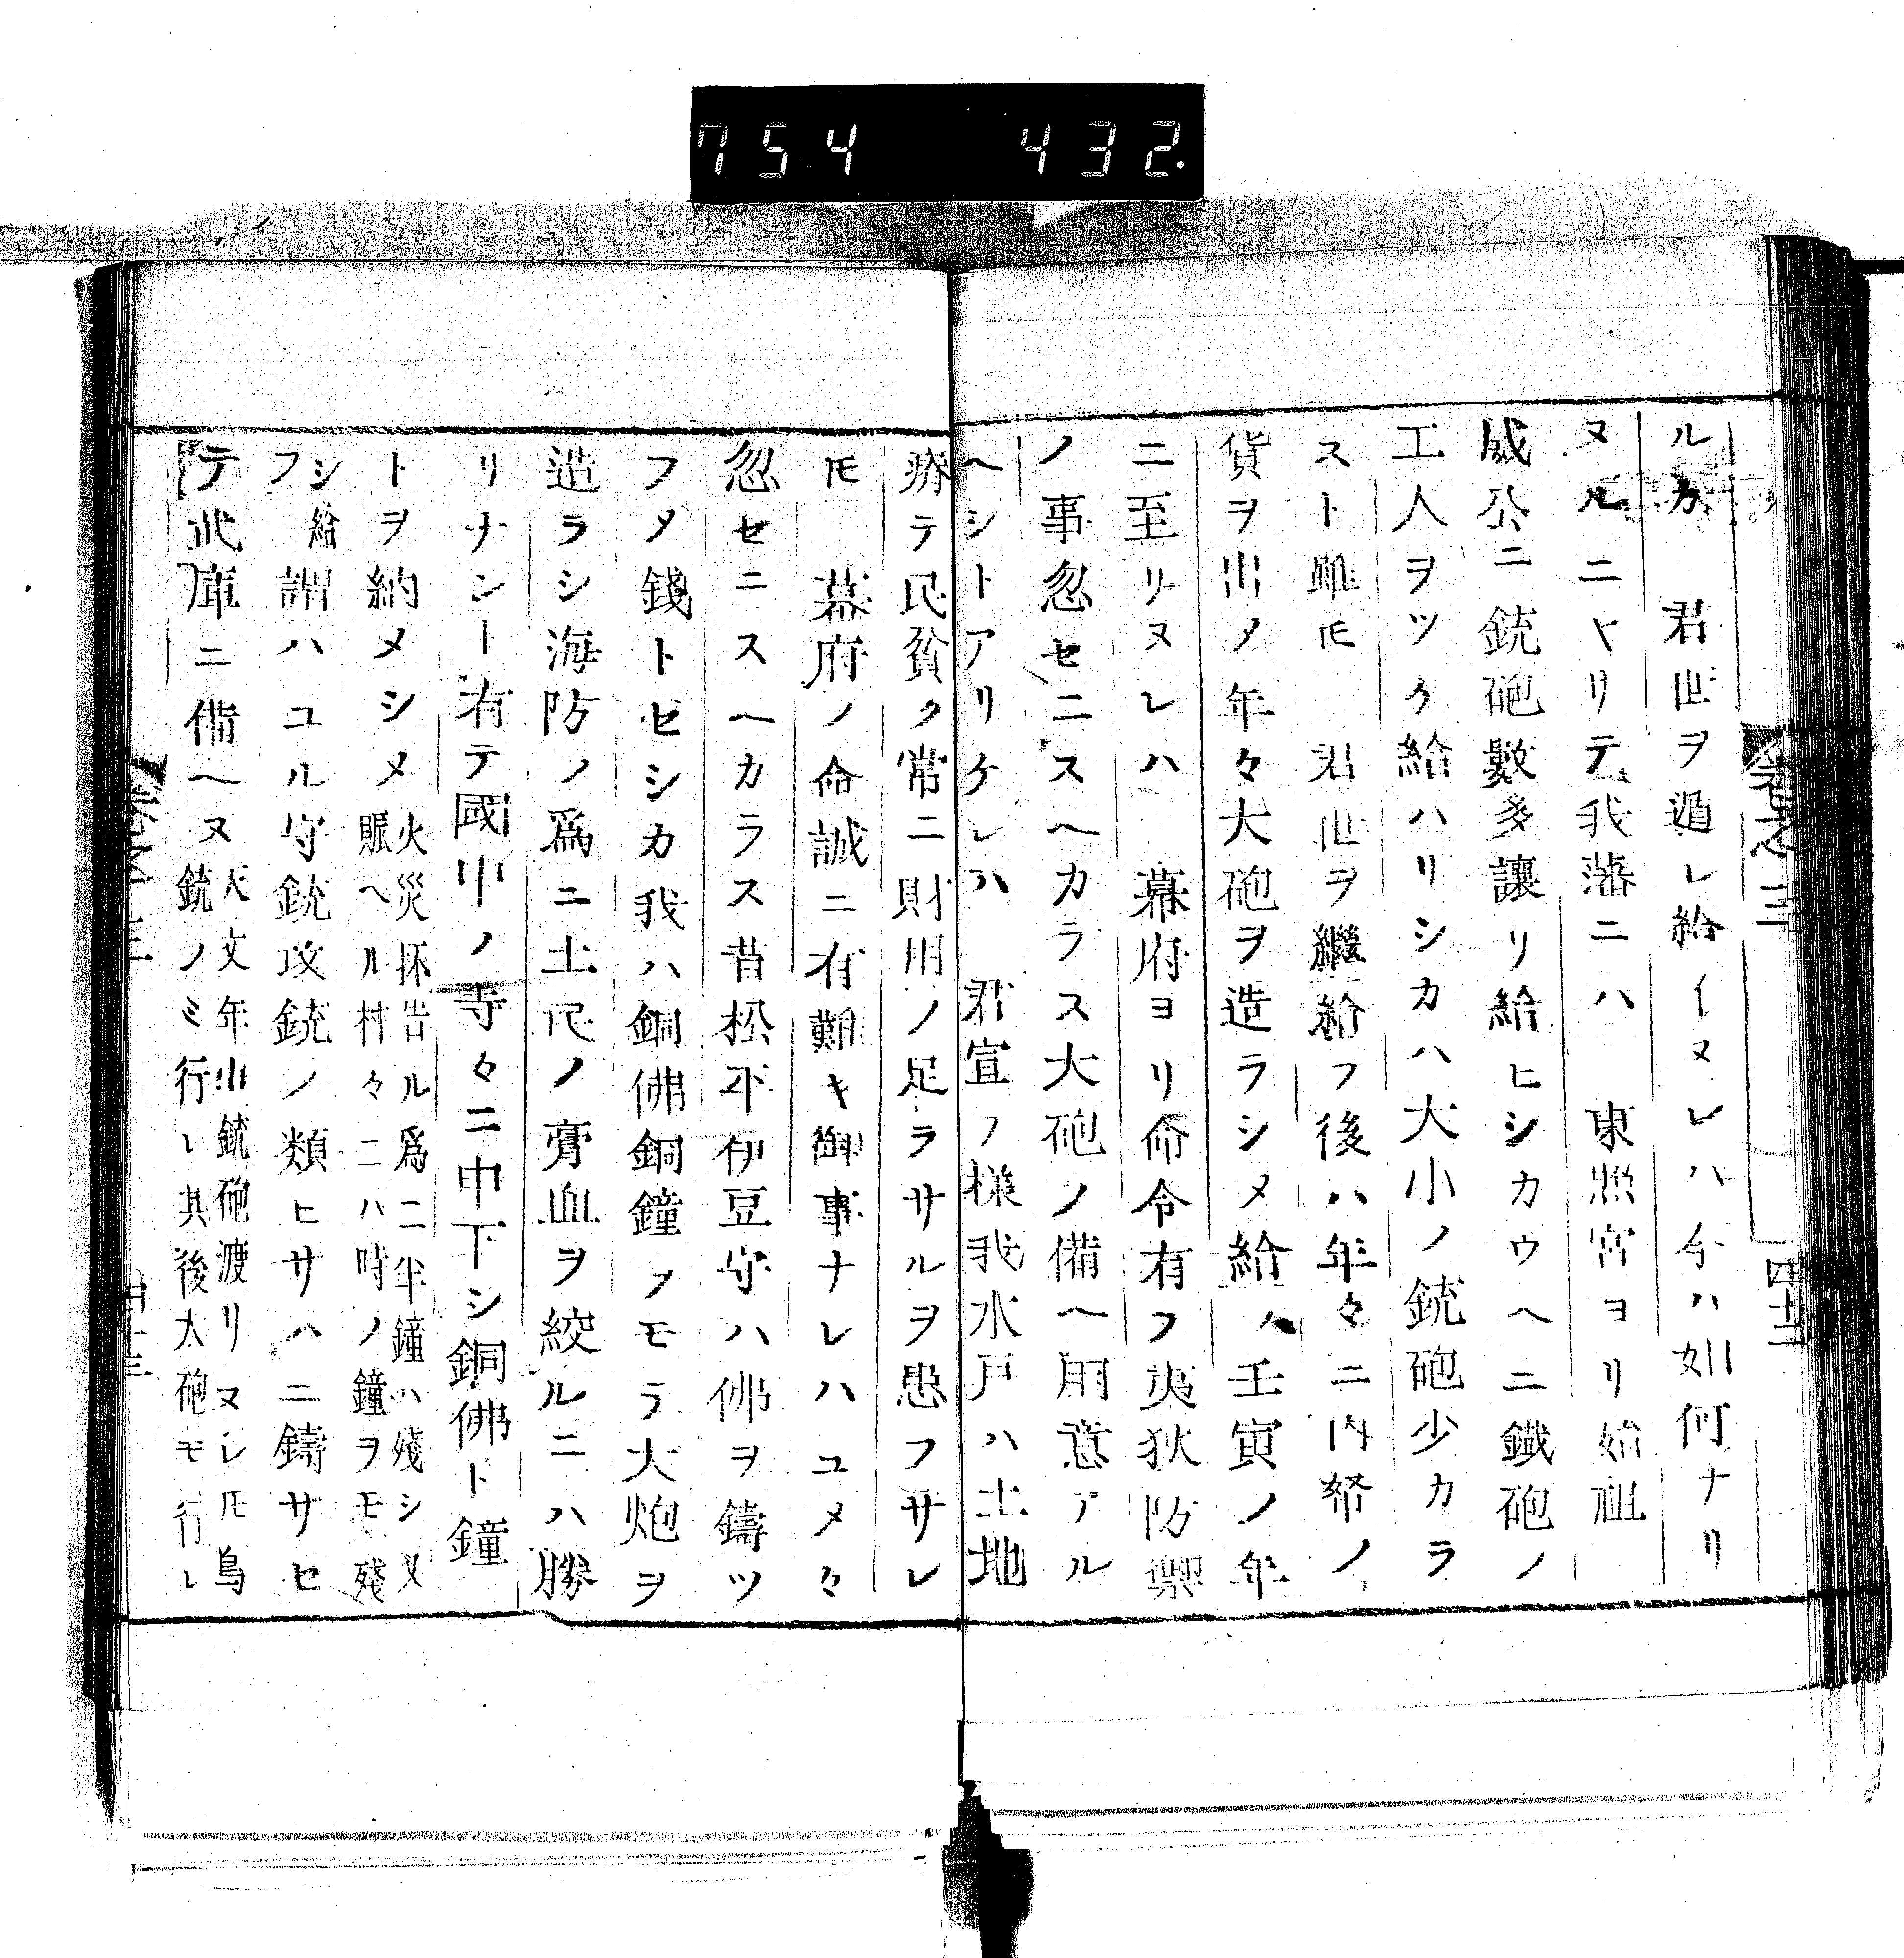 754 432.
ルカ 君世ヲ遁レ給イヌレハ今ハ如何ナリ
ヌルニヤリテ我藩ニハ 東照宮ヨリ始祖
威公ニ銃砲數多讓リ給ヒシカウヘニ鐵砲ノ
工人ヲツケ給ハリシカハ大小ノ銃砲少カラ
スト雖𪜈 君世ヲ繼給フ後ハ年々ニ内帑ノ
貨ヲ出〆年々大砲ヲ造ラシメ給ヘ壬寅ノ年
ニ至リヌレハ 幕府ヨリ命令有フ夷狄防禦
ノ事忽セニスヘカラス大砲ノ備ヘ用意アル
ヘシトアリケレハ 君宣フ様我水戸ハ土地
瘠テ民貧ク常ニ財用ノ足ラサルヲ患フサレ
𪜈 幕府ノ命誠ニ有難キ御事ナレハユメ々
忽セニスヘカラス昔松平伊豆守ハ佛ヲ鑄ツ
フ〆錢トセシカ我ハ銅佛銅鐘ノモラ大炮ヲ
造ラシ海防ノ爲ニ土民ノ膏血ヲ絞ルニハ勝
リナント有テ國中ノ寺々ニ申下シ銅佛ト鐘
トヲ納メシメ
火災抔告ル爲ニ半鐘ハ殘シ又
賑ヘル村々ニハ時ノ鐘ヲモ殘
シ給
フ
謂ハユル守銃攻銃ノ類ヒサハニ鑄サセ
テ武庫ニ備ヘヌ
天文年小銃砲渡リヌレ𪜈鳥
銃ノミ行レ其後大砲モ行レ